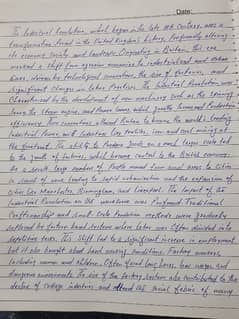 Date:
The Industrial Revolution, which began in the late 18th Century, was a
transformative period in the United Kingdom's history, Profoundly altering
its economy, society and landscape. Originating in Britain, this era
marked a shift from agrarian economies to industrialized and urban
ones, driven by technological innovations, the rise of factories, and
significant changes in labor Practices. The Industrial Revolution was
Characterized by the development of new machinery such as the spinning
Jenny, the steam engine, and Power loom, which greatly increased Production
efficiency. These innovations allowed Britain to become the world's leading
industrial Power, with industries like textiles, iron and coal mining at
the forefront. The ability to Produce goods on a much larger scale led
to the growth of factories, which became central to the British economy.
As a result, large number of People moved from rural areas to Cities
in search of work, leading to rapid urbanization and the expansion of
cities like Manchester, Birmingham, and Liverpool. The impact of the
Industrial Revolution on the workforce was Profound. Traditional
Craftsmanship and small-scale Production methods were gradually
replaced by factory-based systems where labor was often divided into
repetitive tasks. This shift led to a significant increase in employment,
but it also brought about harsh working conditions. Factory workers,
including women and children, often faced long hours, low wages, and
dangerous environments. The rise of the factory system also contributed to the
decline of cottage industries and altered the social fabric of many